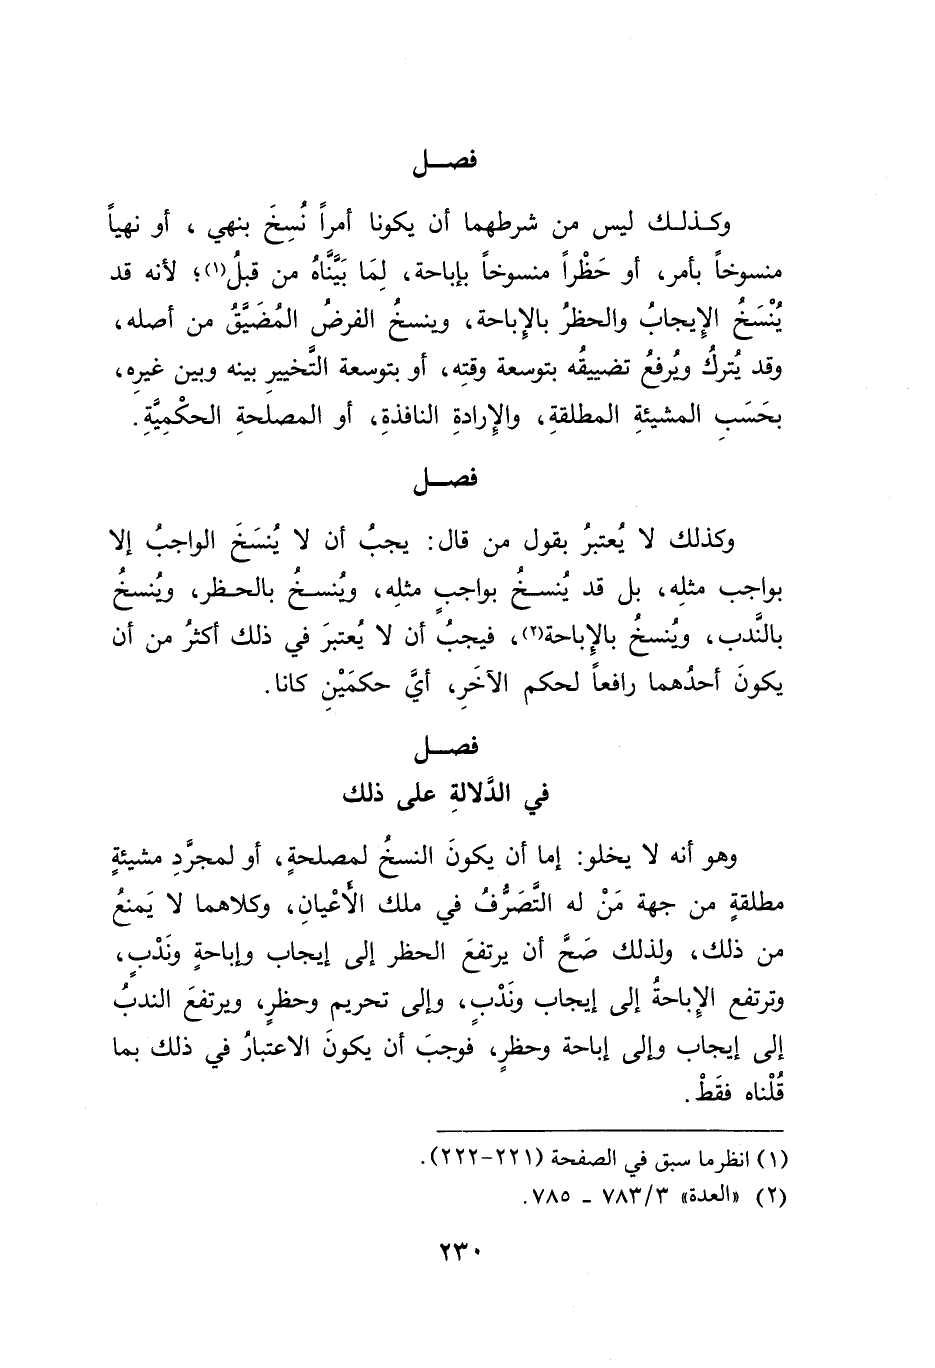 فصــل
وكـذلـك ليس من شرطهما أن يكونا أمراً نُسِخَ بنهي ، أو نهياً
منسوخاً بأمر، أو حَظْراً منسوخاً بإباحة، لِمَا بَيَّنَّاهُ من قبلُ(١)؛ لأنه قد
يُنْسَخُ الإيجابُ والحظرُ بالإباحة، وينسخُ الفرضُ المُضَيَّقُ من أصله،
وقد يُتركُ ويُرفعُ تضييقُه بتوسعة وقتِه، أو بتوسعة التَّخييرِ بينه وبين غيرِه،
بحَسَبِ المشيئةِ المطلقةِ، والإِرادةِ النافذةِ، أو المصلحةِ الحكْمِيَّةِ.
فصــل
وكذلك لا يُعتبرُ بقول من قال: يجبُ أن لا يُنسَخَ الواجبُ إلا
بواجب مثلِه، بل قد يُنســخُ بواجبٍ مثلِه، ويُنســخُ بالحـظر، ويُنسخُ
بالنَّدب، ويُنسخُ بالإباحة(٢)، فيجبُ أن لا يُعتبرَ في ذلك أكثرُ من أن
يكونَ أحدُهما رافعاً لحكم الآخَرِ، أيَّ حكمَيْنِ كانا.
فصــل
في الدَّلالةِ على ذلك
وهو أنه لا يخلو: إما أن يكونَ النسخُ لمصلحةٍ، أو لمجرَّدِ مشيئةٍ
مطلقةٍ من جهة مَنْ له التَّصَرُّفُ في ملك الأَعْيانِ، وكلاهما لا يَمنعُ
من ذلك، ولذلك صَحَّ أن يرتفعَ الحظر إلى إيجاب وإباحةٍ ونَدْبٍ،
وترتفع الإباحةُ إلى إيجاب ونَدْبٍ، وإلى تحريم وحظرٍ، ويرتفعَ الندبُ
إلى إيجاب وإلى إباحة وحظرٍ، فوجبَ أن يكونَ الاعتبارُ في ذلك بما
قُلْناه فقَطْ.
(١) انظر ما سبق في الصفحة (٢٢١-٢٢٢).
(٢) «العدة» ٣/ ٧٨٣ ـ ٧٨٥.
٢٣٠